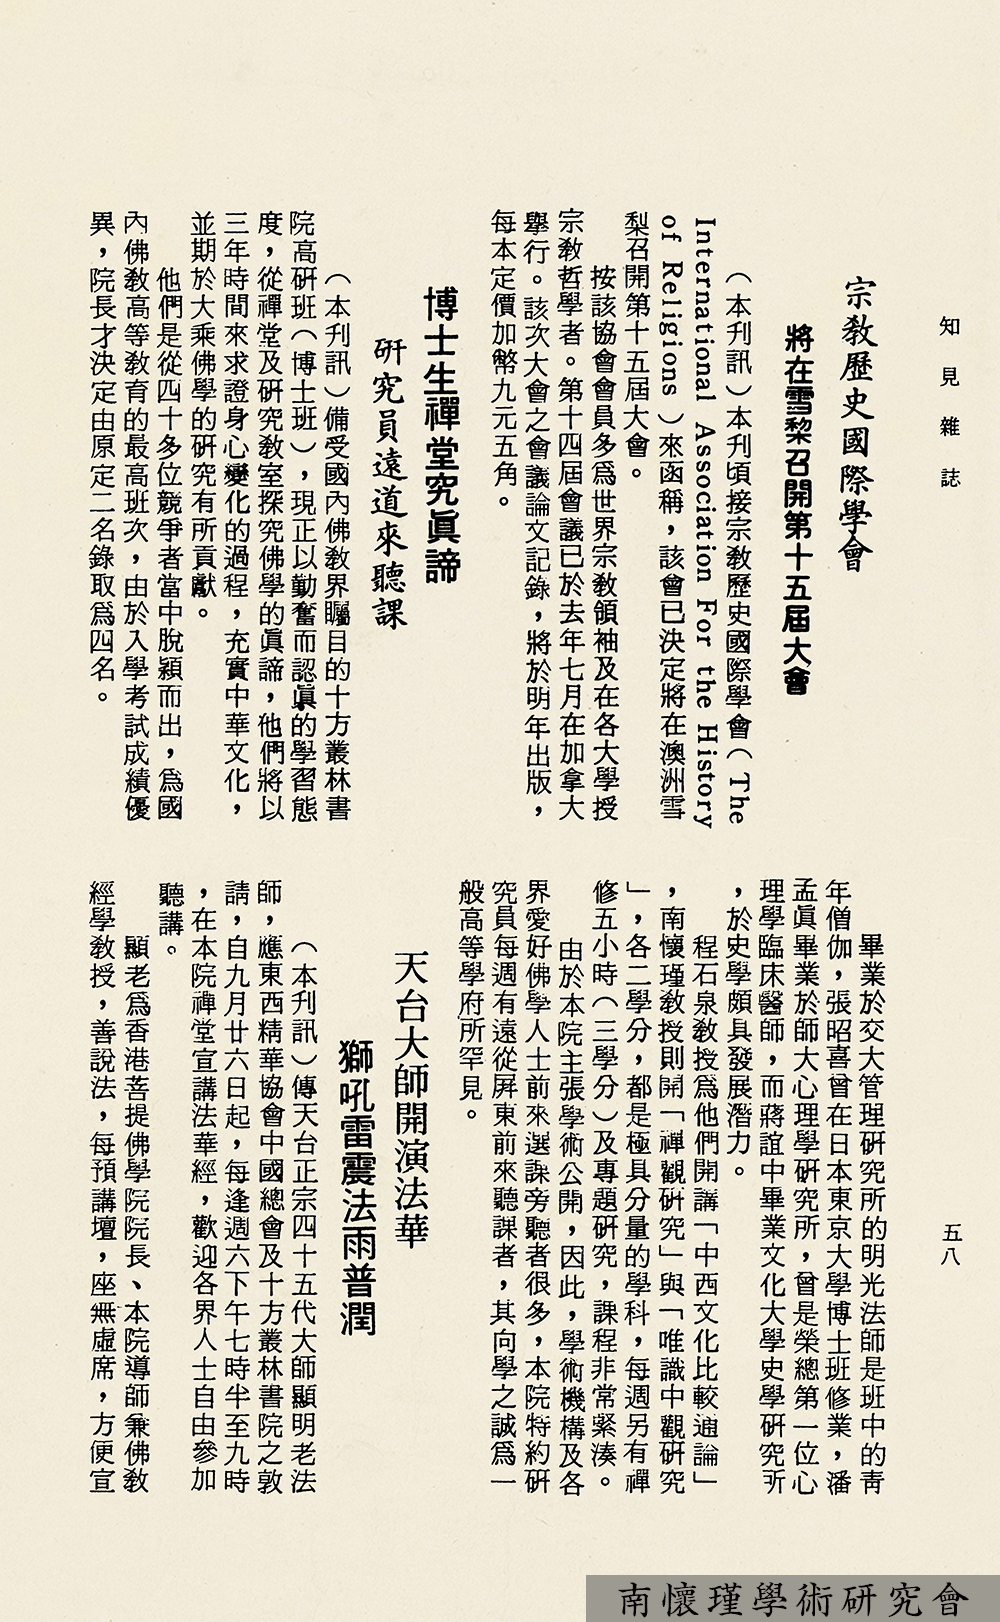 知見雜誌
五八
宗教歷史國際學會
將在雪梨召開第十五屆大會
（本刊訊）本刊頃接宗教歷史國際學會（The
International Association For the History
of Religions）來函稱，該會已決定將在澳洲雪
梨召開第十五屆大會。
按該協會會員多爲世界宗教領袖及在各大學授
宗教哲學者。第十四屆會議已於去年七月在加拿大
舉行。該次大會之會議論文記錄，將於明年出版，
每本定價加幣九元五角。
博士生禪堂究眞諦
研究員遠道來聽課
（本刊訊）備受國內佛教界矚目的十方叢林書
院高研班（博士班），現正以勤奮而認眞的學習態
度，從禪堂及研究教室探究佛學的眞諦，他們將以
三年時間來求證身心變化的過程，充實中華文化，
並期於大乘佛學的研究有所貢獻。
他們是從四十多位競爭者當中脫穎而出，爲國
內佛教高等教育的最高班次，由於入學考試成績優
異，院長才決定由原定二名錄取爲四名。
畢業於交大管理研究所的明光法師是班中的靑
年僧伽，張昭喜曾在日本東京大學博士班修業，潘
孟眞畢業於師大心理學研究所，曾是榮總第一位心
理學臨床醫師，而蔣誼中畢業文化大學史學研究所
，於史學頗具發展潛力。
程石泉教授爲他們開講「中西文化比較通論」
，南懷瑾教授則開「禪觀研究」與「唯識中觀研究
」，各二學分，都是極具分量的學科，每週另有禪
修五小時（三學分）及專題研究，課程非常緊湊。
由於本院主張學術公開，因此，學術機構及各
界愛好佛學人士前來選課旁聽者很多，本院特約研
究員每週有遠從屏東前來聽課者，其向學之誠爲一
般高等學府所罕見。
天台大師開演法華
獅吼雷震法雨普潤
（本刊訊）傳天台正宗四十五代大師顯明老法
師，應東西精華協會中國總會及十方叢林書院之敦
請，自九月廿六日起，每逢週六下午七時半至九時
，在本院禪堂宣講法華經，歡迎各界人士自由參加
聽講。
顯老爲香港菩提佛學院院長、本院導師兼佛教
經學教授，善說法，每預講壇，座無虛席，方便宣
南懷瑾學術研究會